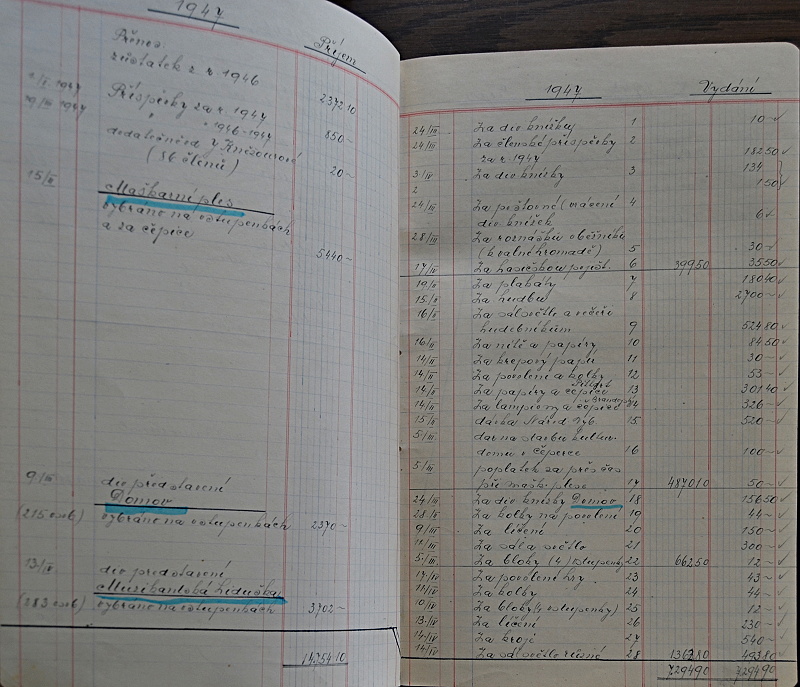 1947
Příjem
Přenos.
zůstatek z r. 1946
2372.10
Příspěvky za r. 1947
" 1946-1947
850~
(36 členů)
20~
15/II
Maškarní ples
vybráno na vstupenkách
a za čepice
5440~
9/III
div. představení
Domov
(215 osob) vybráno na vstupenkách 2370~
13/IV
div. představení
Muzikantská Liduška
(283 osob) vybráno na vstupenkách 3702~
14754.10
1947 Vydání
24/II Za div. knížky 1 10~
24/II Za členské příspěvky 2 182.50
za r. 1947
Za div. knížky 3 134
150
24/II Za poštovné (vrácení 4
div. knížek 6~
28/II Za roznášku oběžníků
(k valné hromadě) 5 30~
17/II 6 399.50 35.50
19/II Za plakáty 7 180.40
15/II Za hudbu 8 2700~
16/II Za sál světlo a večeři
hudebníkům 9 524.80
16/II Za nitě a papíry 10 84.50
14/II Za krepový papír 11 30~
14/II Za povolení a kolky 12 53~
14/II Za papíry a čepice 13 301.40
14/II Za lampiony a čepice 14 326~
15/II dávka 15 520~
5/III dar na stavbu kultur.
domu v Čeperce 16 100~
5/III poplatek za přes čas
při mašk. plese 17 4870.10 50~
24/II Za div. knížky Domov 18 156.50
28/II Za kolky na povolení 19 44~
9/III Za líčení 20 150~
11/III Za sál a světlo 21 300~
5/III Za bloky (4) vstupenky 22 662.50 12~
17/IV Za povolení hry 23 43~
11/IV Za kolky 24 44~
10/IV Za bloky (4 vstupenky) 25 12~
13/IV Za líčení 26 230~
14/IV Za kroje 27 540~
14/IV Za sál světlo různé 28 1362.80 493.80
7294.90 7294.90